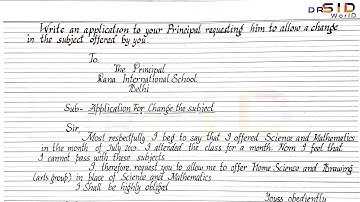 DR SID
WORLD
Write an application to your Principal requesting him to allow a change
in the subject offered by you.
To
The Principal
Rana International School
Delhi
Sub- Application For Change the subject
Sir,
Most respectfully I beg to say that I offered Science and Mathematics
in the month of July I attended the class for a month. Now I feel that
I cannot pass with these subjects
I therefore request you to allow me to offer Home Science and Drawing
(arts group) in place of Science and Mathematics
I Shall be highly obliged
Yours obediently